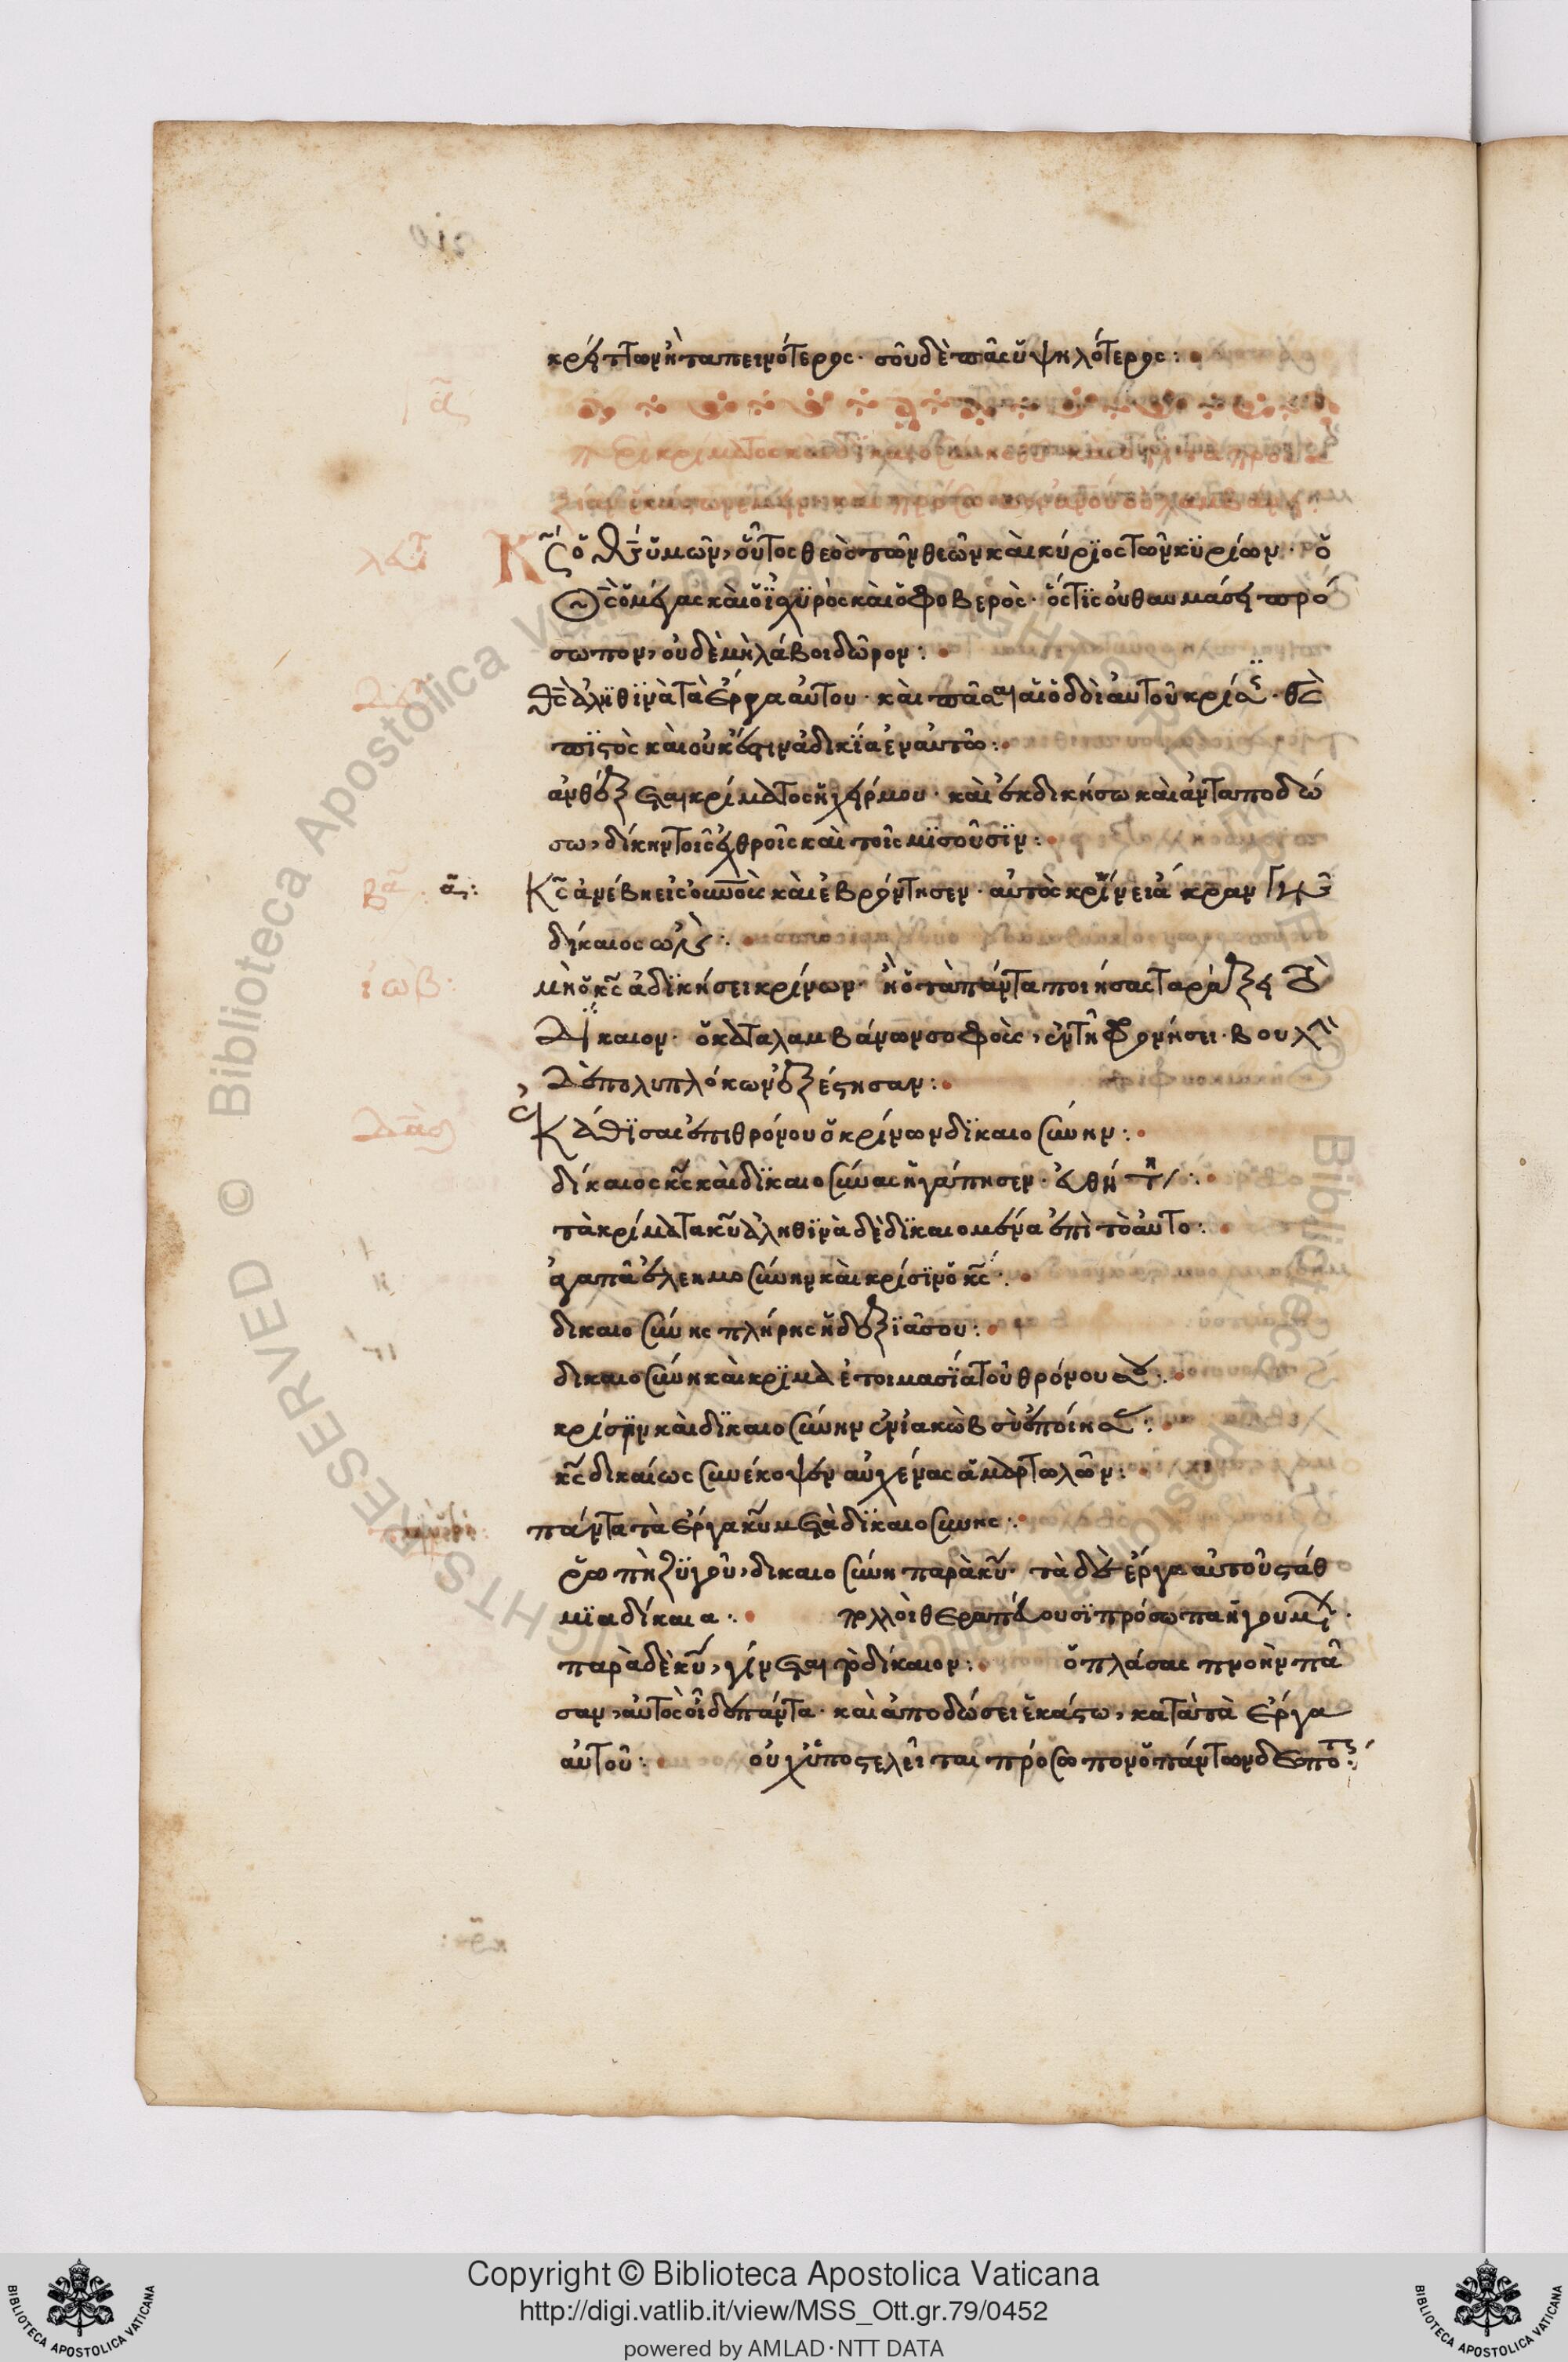 κρείττων ἢ ταπεινότερος· σοῦ δὲ πᾶς ὑψηλότερος:
κς ὁ θς ὑμῶν, οὗτος θεὸς τῶν θεῶν καὶ κύριος τῶν κυρίων· ὁ
θς ὁ μέγας καὶ ὁ ἰσχυρὸς καὶ ὁ φοβερὸς· ὅστις οὐ θαυμάσει πρό
σωπον, οὐδὲ μὴ λάβοι δῶρον:
θς ἀληθινὰ τὰ ἔργα αὐτου· καὶ πᾶσαι αἱ ὁδοὶ αὐτοῦ κρίσεις· θς
πιστὸς καὶ οὐκ ἔστιν ἀδικία ἐν αὐτῶ:
ἀνθέξεται κρίματος ἡ χείρ μου· καὶ ἐκδικήσω καὶ ἀνταποδώ
σω, δίκην τοῖς ἐχθροῖς καὶ τοῖς μισοῦσιν:
βα
α:
κς ἀνέβη εἰς οὐνοὺς καὶ ἐβρόντησεν· αὐτὸς κρίνει ἄκραν γῆς
δίκαιος ὢν:
ιωβ:
μὴ ὁ κς ἀδικήσει κρίνων· ἢ ὁ τὰ πάντα ποιήσας ταράξει τὸ
δίκαιον· ὁ καταλαμβάνων σοφοὺς, ἐν τῆ φρονήσει· βουλὴν
δὲ πολυπλόκων ἐξέστησαν:
ἐκάθισας ἐπι θρόνου ὁ κρίνων δικαιοσύνην:
δίκαιος κς καὶ δικαιοσύνας ἠγάπησεν·
τὰ κρίματα κυ ἀληθινὰ δεδικαιομένα ἐπὶ τὸ αὐτο:
ἀγαπᾶ ἐλεημοσύνην καὶ κρίσιν ὁ κς:
δικαιοσύνης πλήρης ἡ δεξιᾶ σου:
δικαιοσύνη καὶ κρίμα ἑτοιμασία τοῦ θρόνου σου:
κρίσιν καὶ δικαιοσύνην ἐν ἰακὼβ σὺ ἐποίησας:
κς δικαίως συνέκοψεν αὐχένας ἁμαρτωλῶν:
πάντα τὰ ἔργα κυ μετὰ δικαιοσυνης:
ῥοπὴ ζυγοῦ, δικαιοσύνη παρὰ κυ· τὰ δὲ ἔργα αὐτοῦ στάθ
μια δίκαια: πολλοὶ θεραπεύουσι πρόσωπα ἡγουμένων·
παρὰ δὲ κυ, γίνεται τὸ δίκαιον: ὁ πλάσας πνοὴν πᾶ
σαν, αὐτὸς οἶδε πάντα· καὶ ἀποδώσει ἑκάστω, κατὰ τὰ ἔργα
αὐτοῦ: οὐχ ὑποστελεῖται πρόσωπον ὁ πάντων δεσπότης:
Copyright © Biblioteca Apostolica Vaticana
http://digi.vatlib.it/view/MSS_Ott.gr.79/0452
powered by AMLAD·NTT DATA